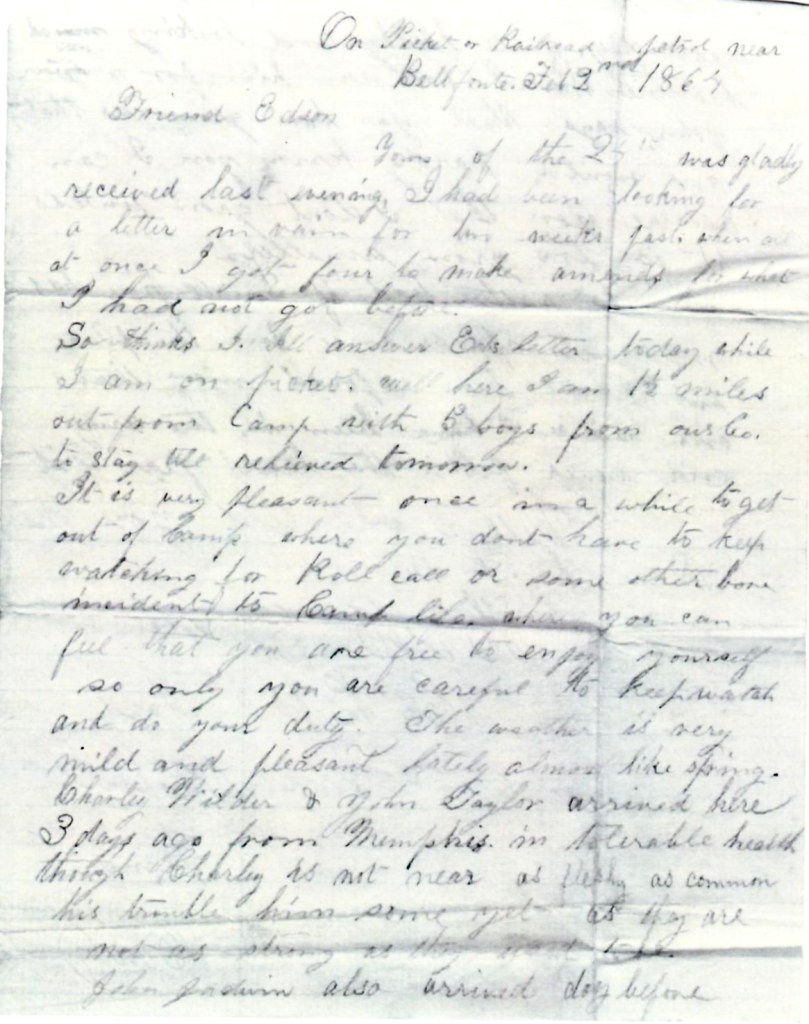 On Picket or Railroad patrol near
Bellfonte. Feb 2nd 1864
Friend Edson
Yours of the was gladly
received last evening, I had been looking for
a letter in vain for two weeks past when all
at once I got four to make amends for what
I had not got before.
So thinks I. Ill answer Eds letter today while
I am on picket. well here I am 1½ miles
out from Camp with 5 boys from our Co.
to stay till relieved tomorrow.
It is very pleasant once in a while to get
out of Camp where you dont have to keep
watching for Roll call or some other bore
incident to Camp life. where you can
feel that you are free to enjoy yourself
so only you are careful to keep watch
and do your duty. The weather is very
mild and pleasant lately almost like spring.
Charley Wilder & John Taylor arrived here
3 days ago from Memphis. in tolerable health
though Charley is not near as fleshy as common
his trouble him some yet as they are
not as strong as they used to be.
John also arrived day before